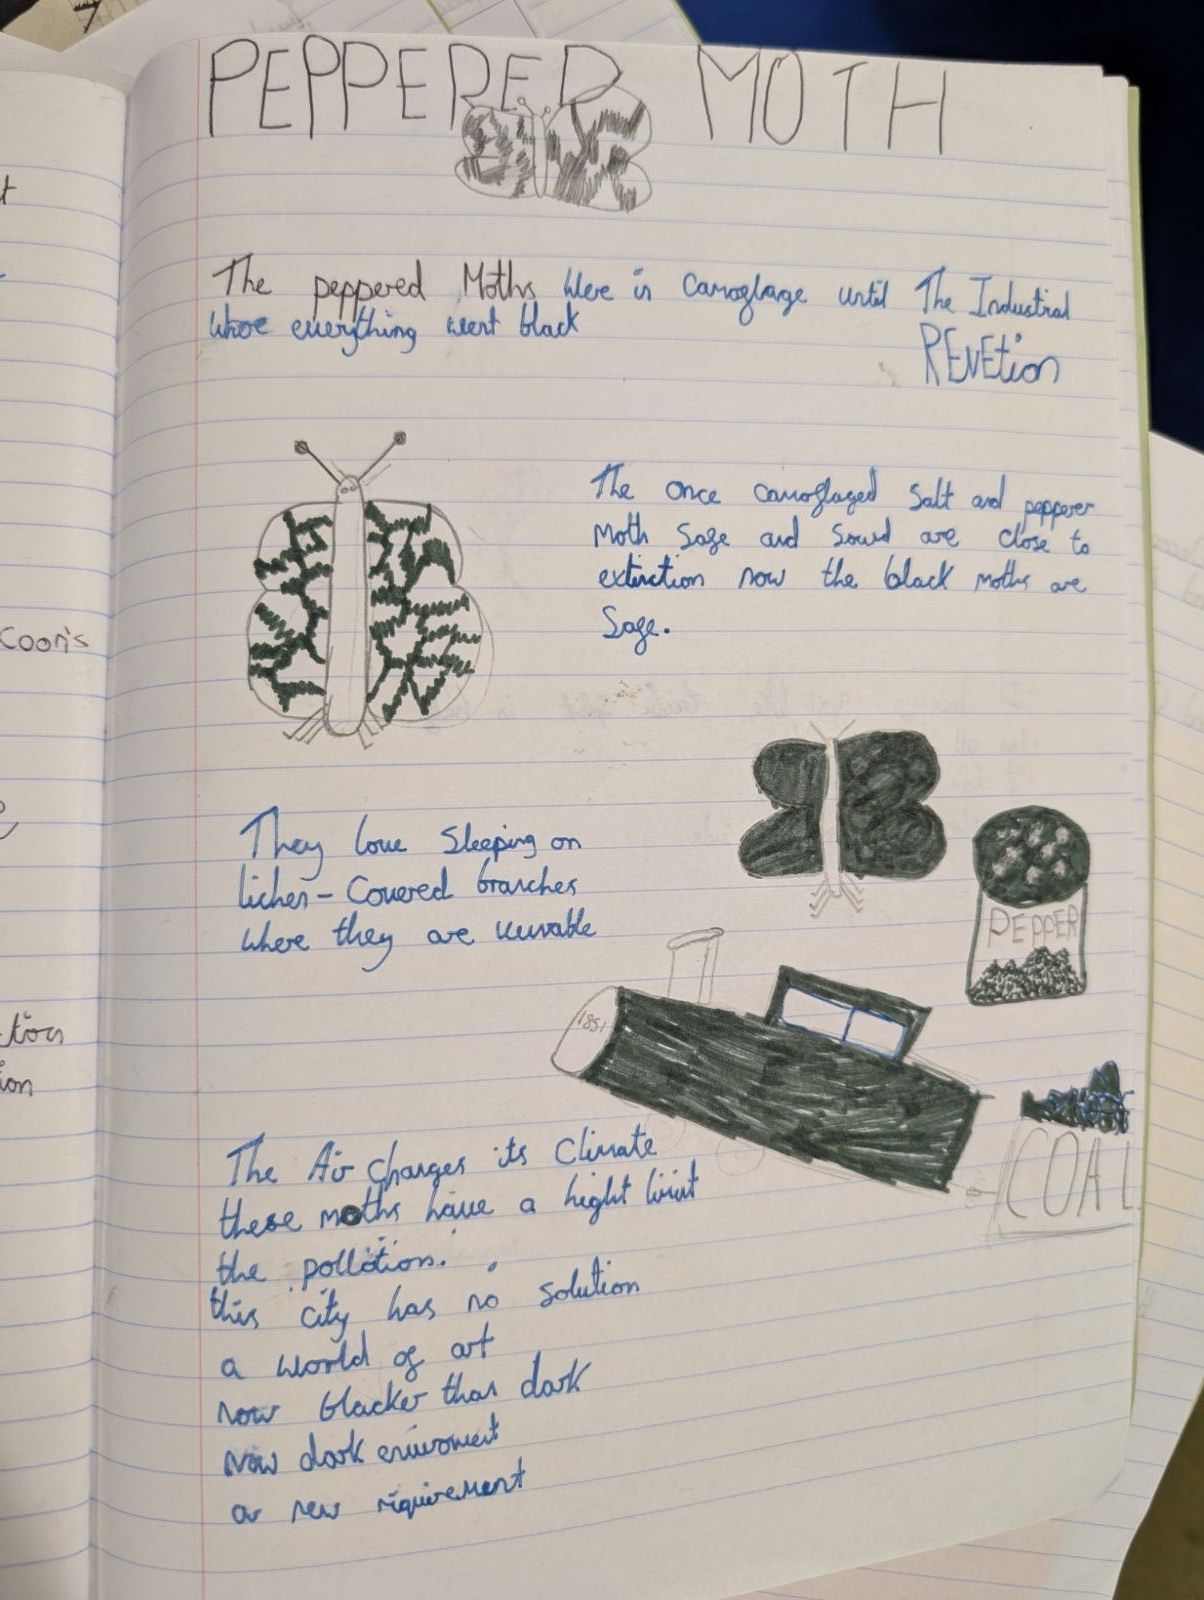 PEPPERED MOTH
The peppered Moths were in camoglage until The Industrial
REVEtion
whore everything went black
The once camoflaged salt and pepperer
Moth safe and sound are close to
extinction now the black moths are
safe.
They love sleeping on
lichen-covered branches
where they are
PEPPER
1851
COAL
The Air changes its climate
these moths have a hight limit
the pollotion.
this city has no solution
a world of art
now blacker than dark
now dark enivroment
a new riquirement
t
Coon's
tors
ion